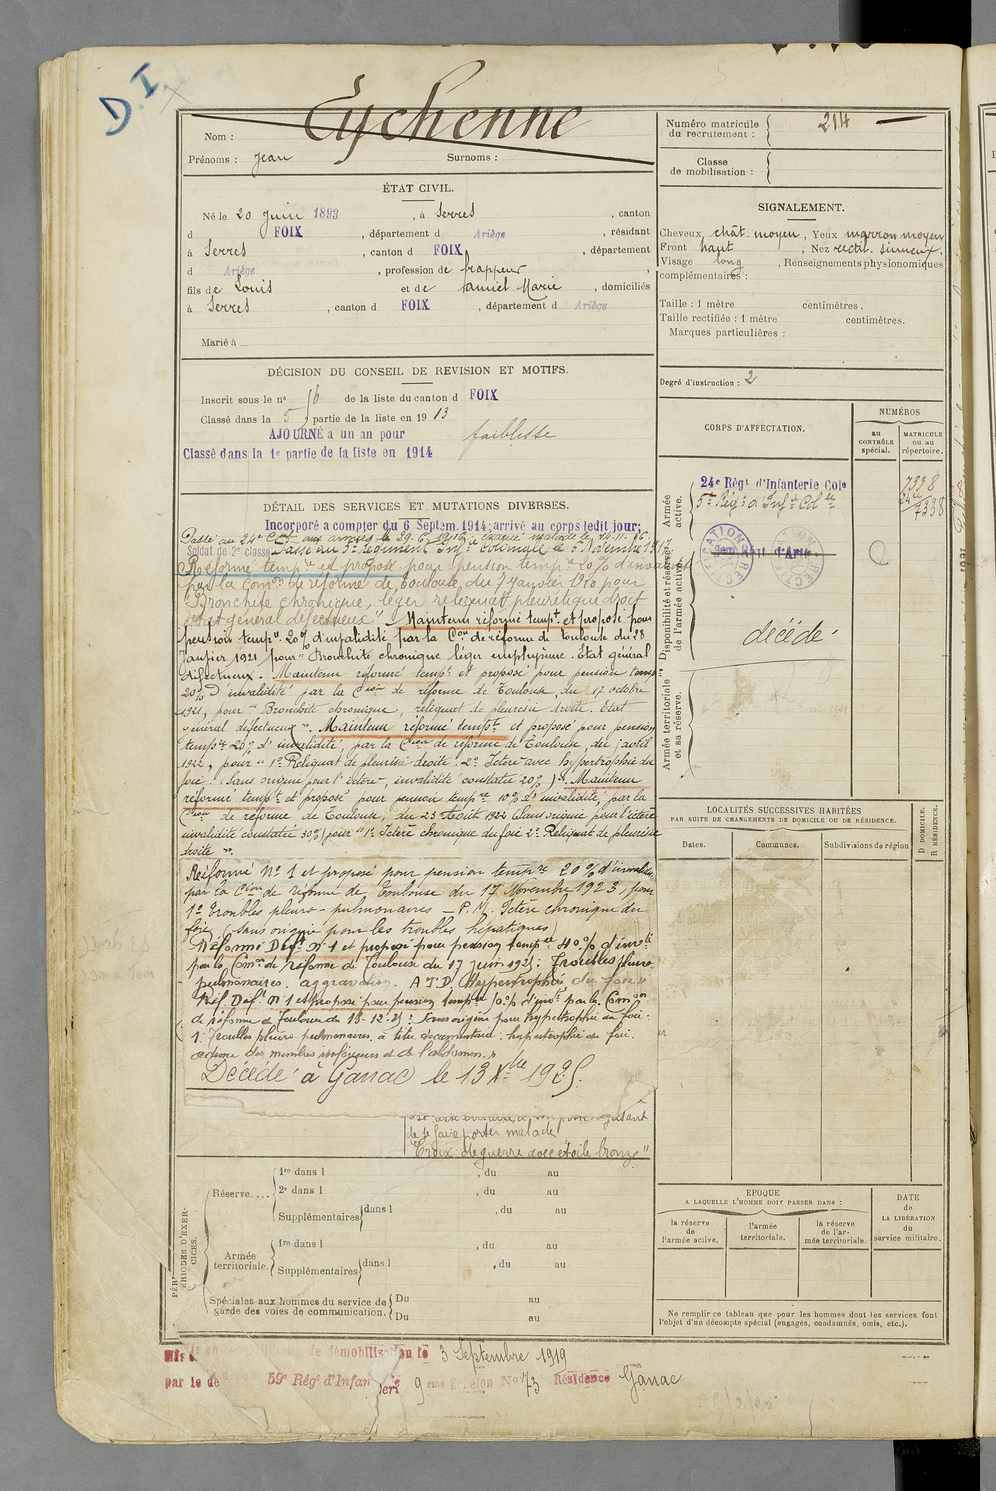 D.I
Nom : Eychenne
Prénoms : Jean Surnoms :
ÉTAT CIVIL.
Né le 20 Juin 1893, à Serres, canton
d FOIX, département d Ariège, résidant
à Serres, canton d FOIX, département
d Ariège, profession de frappeur
fils de Louis et de Marie, domiciliés
à Serres, canton d FOIX, département d Ariège
Marié à
DÉCISION DU CONSEIL DE REVISION ET MOTIFS.
Inscrit sous le n° 16 de la liste du canton d FOIX
Classé dans la 5 partie de la liste en 1913
AJOURNÉ à un an pour faiblesse
Classé dans la 1e partie de la liste en 1914
DÉTAIL DES SERVICES ET MUTATIONS DIVERSES.
Incorporé a compter du 6 Septem. 1914; arrivé au corps ledit jour;
Passé au 24e Cal aux armées le 29.6.1916, évacué malade le 14.11.16
Soldat de 2e classe Passé au 5e Régiment Inf. Coloniale le 5 Novembre 1917
Réformé tempre et proposé pour pension tempre 20% d'invalidité
par la Comon de réforme de Toulouse du 7 Janvier 1920 pour
"Bronchite chronique, léger reliquat pleurétique droit
état général défectueux". Maintenu réformé tempt et proposé pour
pension tempre 20% d'invalidité par la Con de réforme de Toulouse du 28
Janvier 1921 pour "Bronchite chronique léger emphysème. Etat général
défectueux. Maintenu réformé tempt et proposé pour pension temp
20% d'invalidité par la Cion de réforme de Toulouse, du 17 octobre
1921, pour "Bronchite chronique, reliquat de pleurésie droite. Etat
général défectueux". Maintenu réformé tempt et proposé pour pension
tempre 20% d'invalidité, par la Cion de réforme de Toulouse, du avril
1922, pour "1° Reliquat de pleurésie droite. 2° Ictère avec hypertrophie du
foie. (Sans origine pour l'ictère, invalidité constatée 20%)". Maintenu
réformé tempt et proposé pour pension tempre 10% d'invalidité, par la
Cion de réforme de Toulouse, du 23 Août 1922 (Sans origine pour l'ictère
invalidité constatée 30%) pour "1° Ictère chronique du foie 2° Reliquat de pleurésie
droite".
Réformé N° 1 et proposé pour pension tempre 20% d'invalidité
par la Cion de réforme de Toulouse du 17 Novembre 1923, pour
1° Troubles pleuro-pulmonaires - P.M. Ictère chronique du
foie, (sans origine pour les troubles hépatiques)
Réformé Deft N° 1 et proposé pour pension tempre 40% d'invté
par la Comon de réforme de Toulouse du 17 juin 1925: Troubles pleuro
pulmonaires. aggravation. A T.D. Hypertrophie du foie
Réf. Deft N° 1 et proposé pour pension tempre d'invté par la Comon
de réforme de Toulouse du 18-12-25: Sans origine pour hypertrophie du foie.
1° Troubles pleuro-pulmonaires, à titre documentaire: hypertrophie du foie.
oedème des membres inférieurs et de l'abdomen."
Décédé à Ganac le 13 Xbre 1925.
de se faire porter malade
"Croix de guerre avec étoile bronze"
PÉRIODES D'EXERCICES.
Réserve....
1re dans l , du au
2e dans l , du au
Supplémentaires dans l , du au
Armée territoriale.
1re dans l , du au
Supplémentaires dans l , du au
Spéciales aux hommes du service de garde des voies de communication.
Du au
Du au
de démobilisation le 3 Septembre 1919
par le dépôt 59e Régt d'Infanterie 9me Echelon N° 73 Résidence Ganac
Numéro matricule du recrutement : 214
Classe de mobilisation :
SIGNALEMENT.
Cheveux chât. moyen, Yeux marron moyen
Front haut, Nez rectil. sinueux.
Visage long, Renseignements physionomiques
complémentaires :
Taille : 1 mètre centimètres.
Taille rectifiée : 1 mètre centimètres.
Marques particulières :
Degré d'instruction : 2
CORPS D'AFFECTATION.
NUMÉROS
au CONTRÔLE spécial.
MATRICULE ou au répertoire.
Armée active.
24e Régt d'Infanterie Cole
5e Rég. d'Infie Colle
7338
7338
Disponibilité et réserve de l'armée active.
RECTIFICATION
RECTIFICATION
décédé
Armée territoriale et sa réserve.
LOCALITÉS SUCCESSIVES HABITÉES
PAR SUITE DE CHANGEMENTS DE DOMICILE OU DE RÉSIDENCE.
Dates.
Communes.
Subdivisions de région
D DOMICILE.
R RÉSIDENCE.
EPOQUE
A LAQUELLE L'HOMME DOIT PASSER DANS :
la réserve de l'armée active.
l'armée territoriale.
la réserve de l'armée territoriale.
DATE de LA LIBÉRATION du service militaire.
Ne remplir ce tableau que pour les hommes dont les services font
l'objet d'un décompte spécial (engagés, condamnés, omis, etc.).